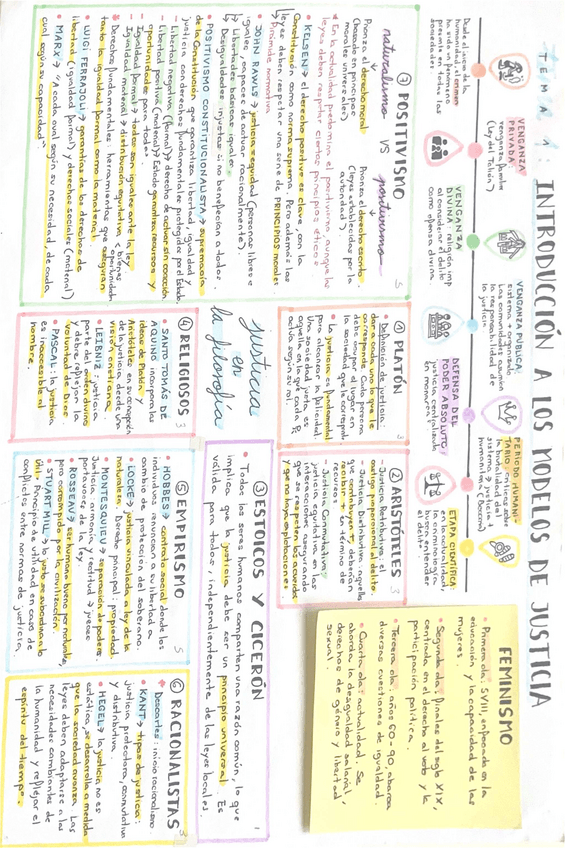 TEMA 1: INTRODUCCIÓN A LOS MODELOS DE JUSTICIA
VENGANZA
PRIVADA:
venganza hombre
(Ley del Talión)
VENGANZA
DIVINA: religión imp
al considerar el delito
como ofensa divina.
VENGANZA PÚBLICA:
sistema + organizado
Las comunidades asumían
la responsabilidad de
la justicia.
DEFENSA DEL
PODER ABSOLUTO:
justicia centralizada
en monarca.
PERIODO HUMANI-
TARIO:
la brutalidad del
sistema → justicia
humanitaria (Beccaria)
ETAPA CIENTÍFICA:
en la actualidad
la criminología
busca entender
el delito.
FEMINISMO
• Primera ola: SVIII, enfocada en la
educación y la capacidad de las
mujeres.
• Segunda ola: finales del siglo XIX,
centrada en el derecho al voto y la
participación política.
• Tercera ola: años 60-90, abarca
diversas cuestiones de igualdad.
• Cuarta ola: actualidad. Se
aborda la desigualdad salarial,
derechos de género y libertad
sexual.
① PLATÓN 3
• Definición de justicia:
dar a cada uno lo que le
corresponde. Cada persona
debe ocupar el lugar en
la sociedad que le corresponde
• La justicia es fundamental
para alcanzar la felicidad.
Una sociedad justa es
aquella en la que cada P.
actúa según su rol.
② ARISTÓTELES 3
- Justicia Retributiva: el
castigo proporcional al delito.
- Justicia Distributiva: aquellos
que contribuyen +, deberían
recibir + en término de
recursos
- Justicia Conmutativa:
justicia equitativa en las
interacciones, asegurando
que se respeten los acuerdos
y que no haya explotaciones.
justicia
en
la filosofía
③ ESTOICOS Y CICERÓN 1
• Todos los seres humanos comparten una razón común, lo que
implica que la justicia debe ser un principio universal. Es
válida para todos, independientemente de las leyes locales.
④ RELIGIOSOS 3
• SANTO TOMÁS DE
AQUINO: incorpora las
ideas de Platón y
Aristóteles en su concepción
de la justicia, desde una
visión cristiana.
• LEIBNIZ: justicia
parte del orden divino
y debe reflejar la
voluntad de Dios
• PASCAL: la justicia
es inaccesible al
hombre.
⑤ EMPIRISMO 5
• HOBBES → contrato social donde los
individuos renuncian a su libertad a
cambio de protección del soberano
• LOCKE → justicia vinculada a ley de la
naturaleza. Derecho principal: propiedad
• MONTESQUIEU → separación de poderes
justicia, armonía y rectitud → jueces
portavoces de la ley.
• ROSSEAU → ser humano bueno por naturaleza,
pero corrompido por la civilización.
• STUART MILL → lo justo se subordina a lo
útil. Principio de utilidad en casos de
conflictos entre normas de justicia.
⑥ RACIONALISTAS 3
◆ Descartes: inicio racionalismo
• KANT → tipos de justicia:
justicia protectora, conmutativa
y distributiva.
• HEGEL → la justicia no es
estática, se desarrolla a medida
que la sociedad avanza. Las
leyes deben adaptarse a las
necesidades cambiantes de
la humanidad y reflejar el
espíritu del tiempo.
⑦ POSITIVISMO 5
naturalismo VS positivismo
Prioriza el derecho moral
(basado en principios
morales universales)
Prioriza el derecho escrito
(leyes establecidas por la
autoridad)
* En la actualidad predomina el positivismo, aunque las
leyes deben respetar ciertos principios éticos *
• KELSEN → el derecho positivo es clave, con la
Constitución como norma suprema. Pero además las
leyes deben respetar una serie de PRINCIPIOS morales
↳ Pirámide normativa
• JOHN RAWLS → justicia = equidad (personas libres e
iguales, capaces de actuar racionalmente).
↳ Libertades básicas iguales
↳ Desigualdades injustas si no benefician a todos.
• POSITIVISMO CONSTITUCIONALISTA → supremacía
de la constitución que garantiza libertad, igualdad y
justicia con derechos fundamentales protegidos por el Estado.
- Libertad negativa (formal) → derecho de actuar sin coacción
- Libertad positiva (material) → Estado garantiza recursos y
oportunidades para todos.
- Igualdad formal → todos son iguales ante la ley
- Igualdad material → distribución equitativa < bienes
oportunidades
◆ Derechos fundamentales: herramientas que aseguran
tanto la igualdad formal como la material.
• LUIGI FERRAJOLI → garantías de los derechos de
libertad (igualdad formal) y derechos sociales (material)
• MARX → "A cada cual según su necesidad, de cada
cual según su capacidad"